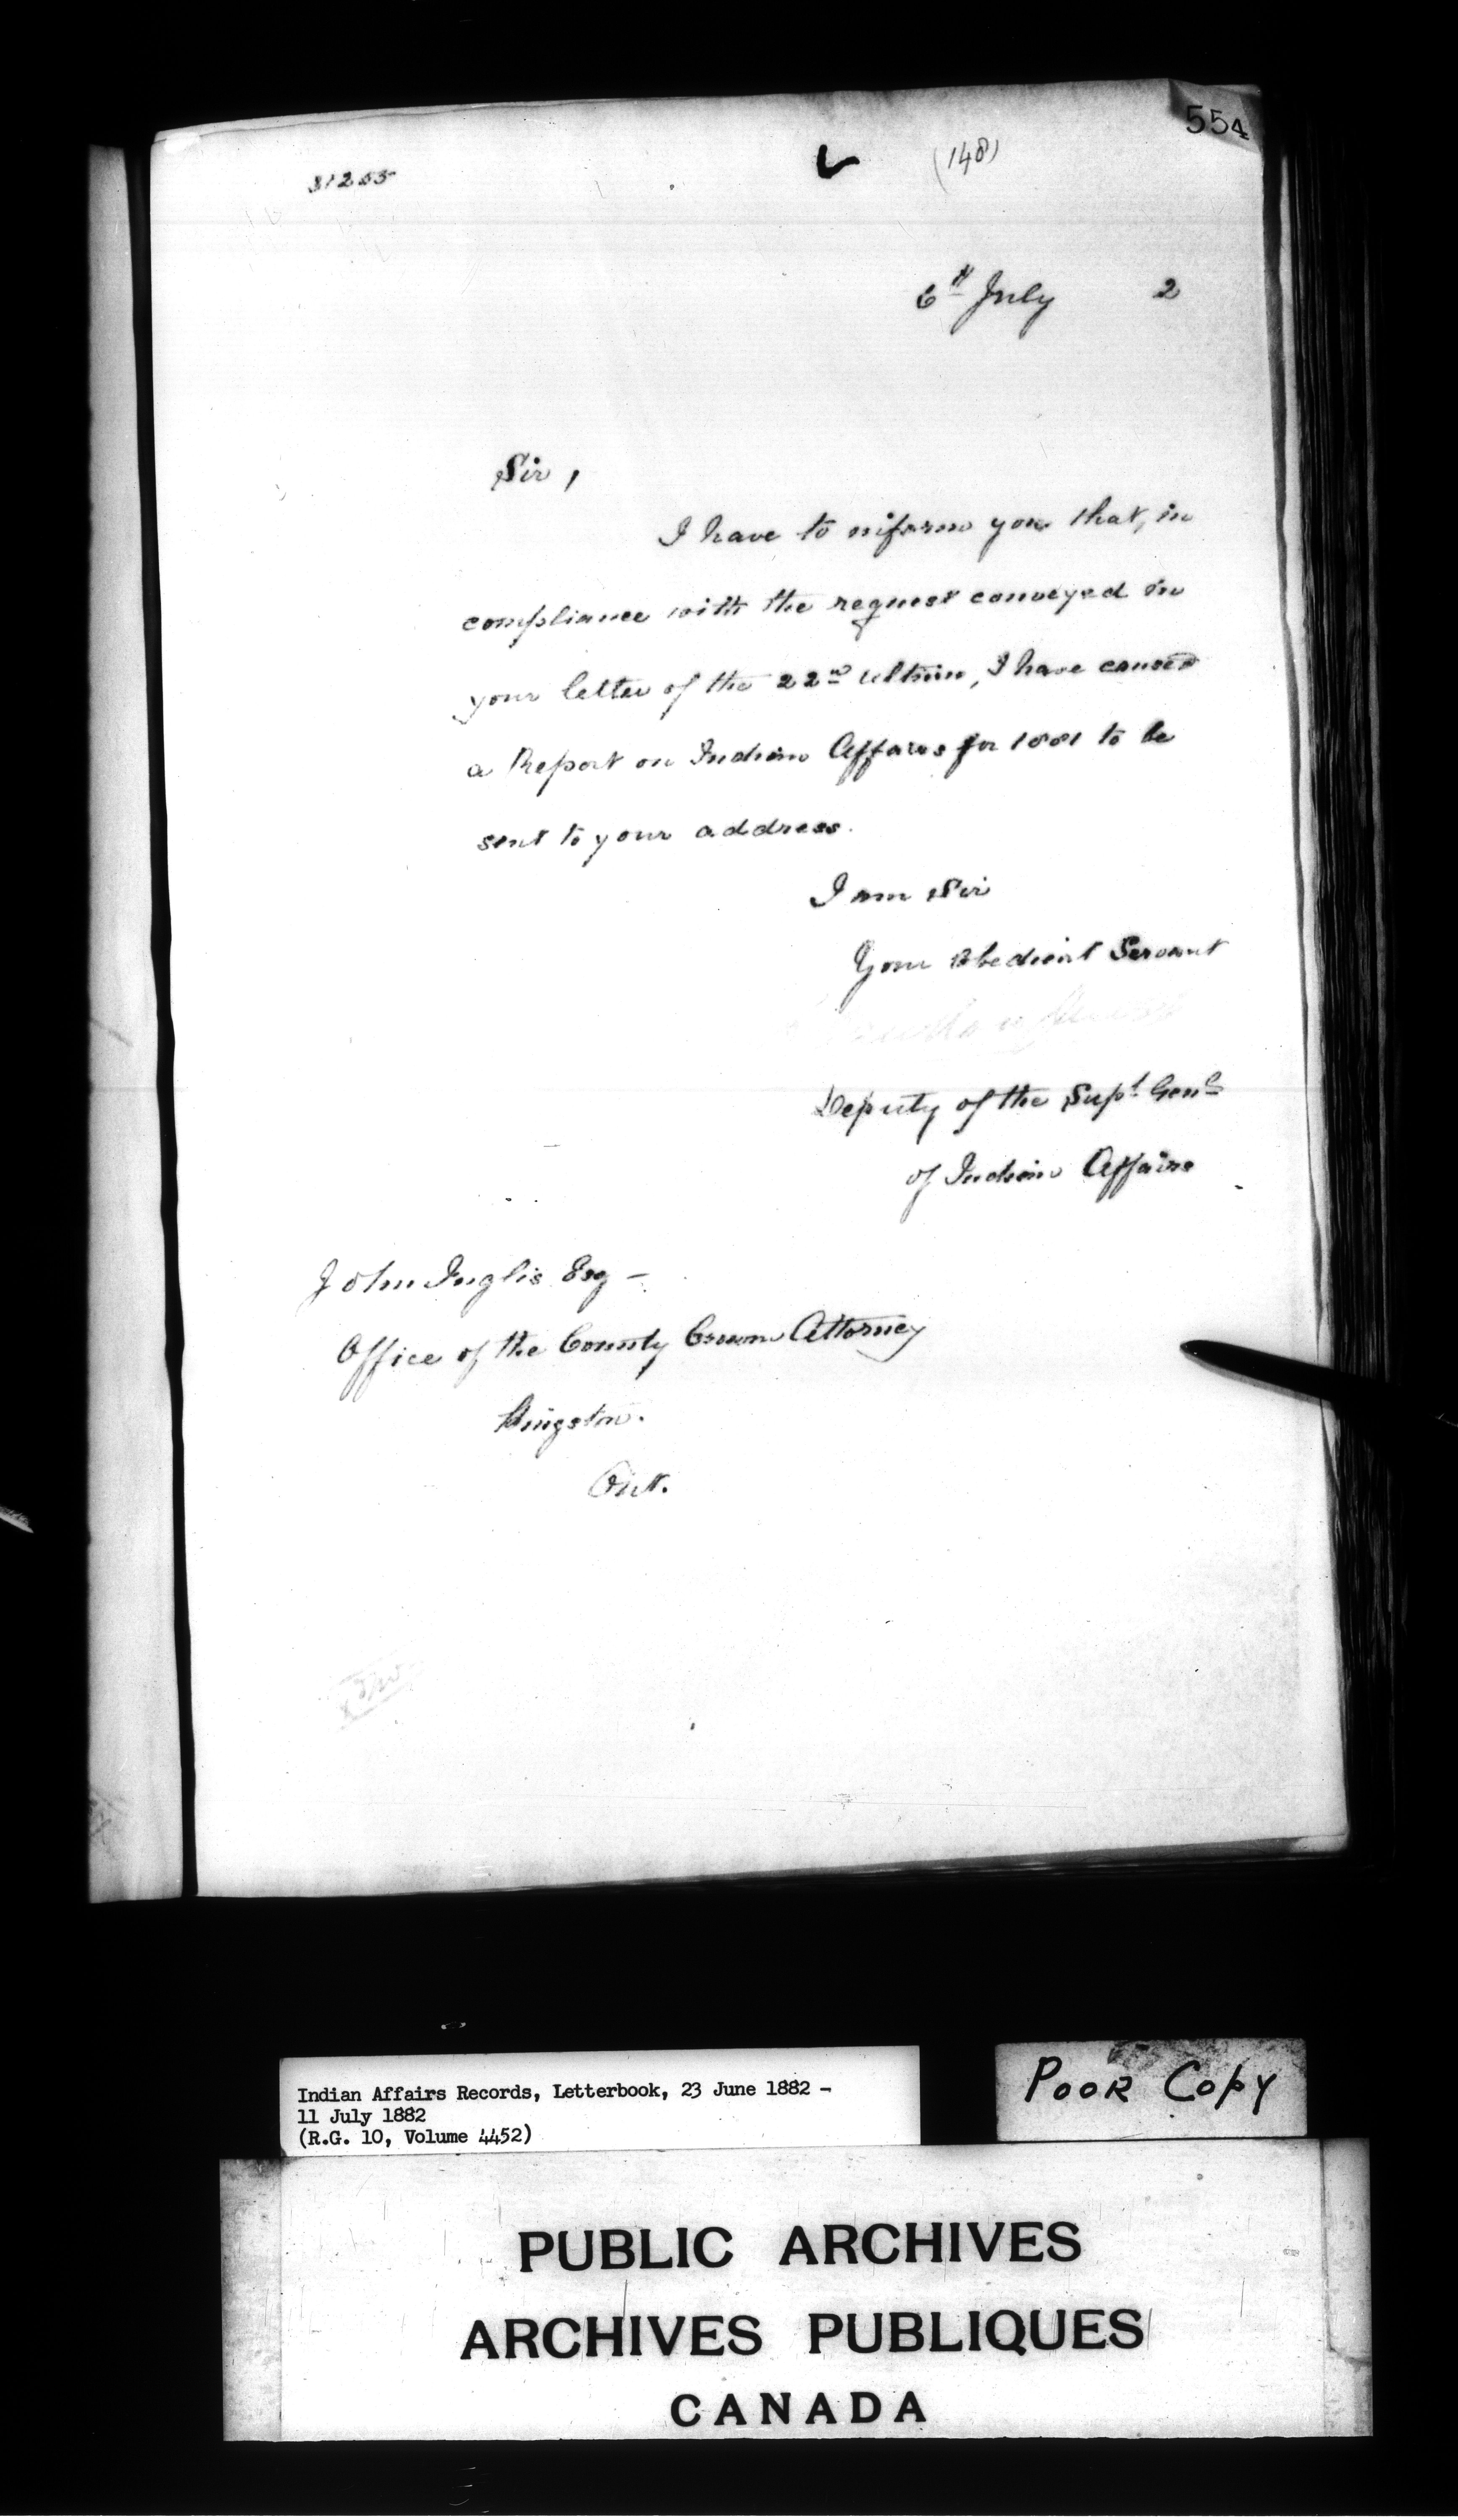 554
31255
(148)
6th July 2
Sir,
I have to inform you that, in
compliance with the request conveyed in
your letter of the 22nd Ultimo, I have caused
a Report on Indian Affairs for 1881 to be
sent to your address.
I am Sir
Your Obedient Servant
Deputy of the Supt Genl
of Indian Affairs
John Inglis Esq —
Office of the County Crown Attorney
Kingston.
Ont.
Indian Affairs Records, Letterbook, 23 June 1882 –
11 July 1882
(R.G. 10, Volume 4452)
POOR COPY
PUBLIC ARCHIVES
ARCHIVES PUBLIQUES
CANADA